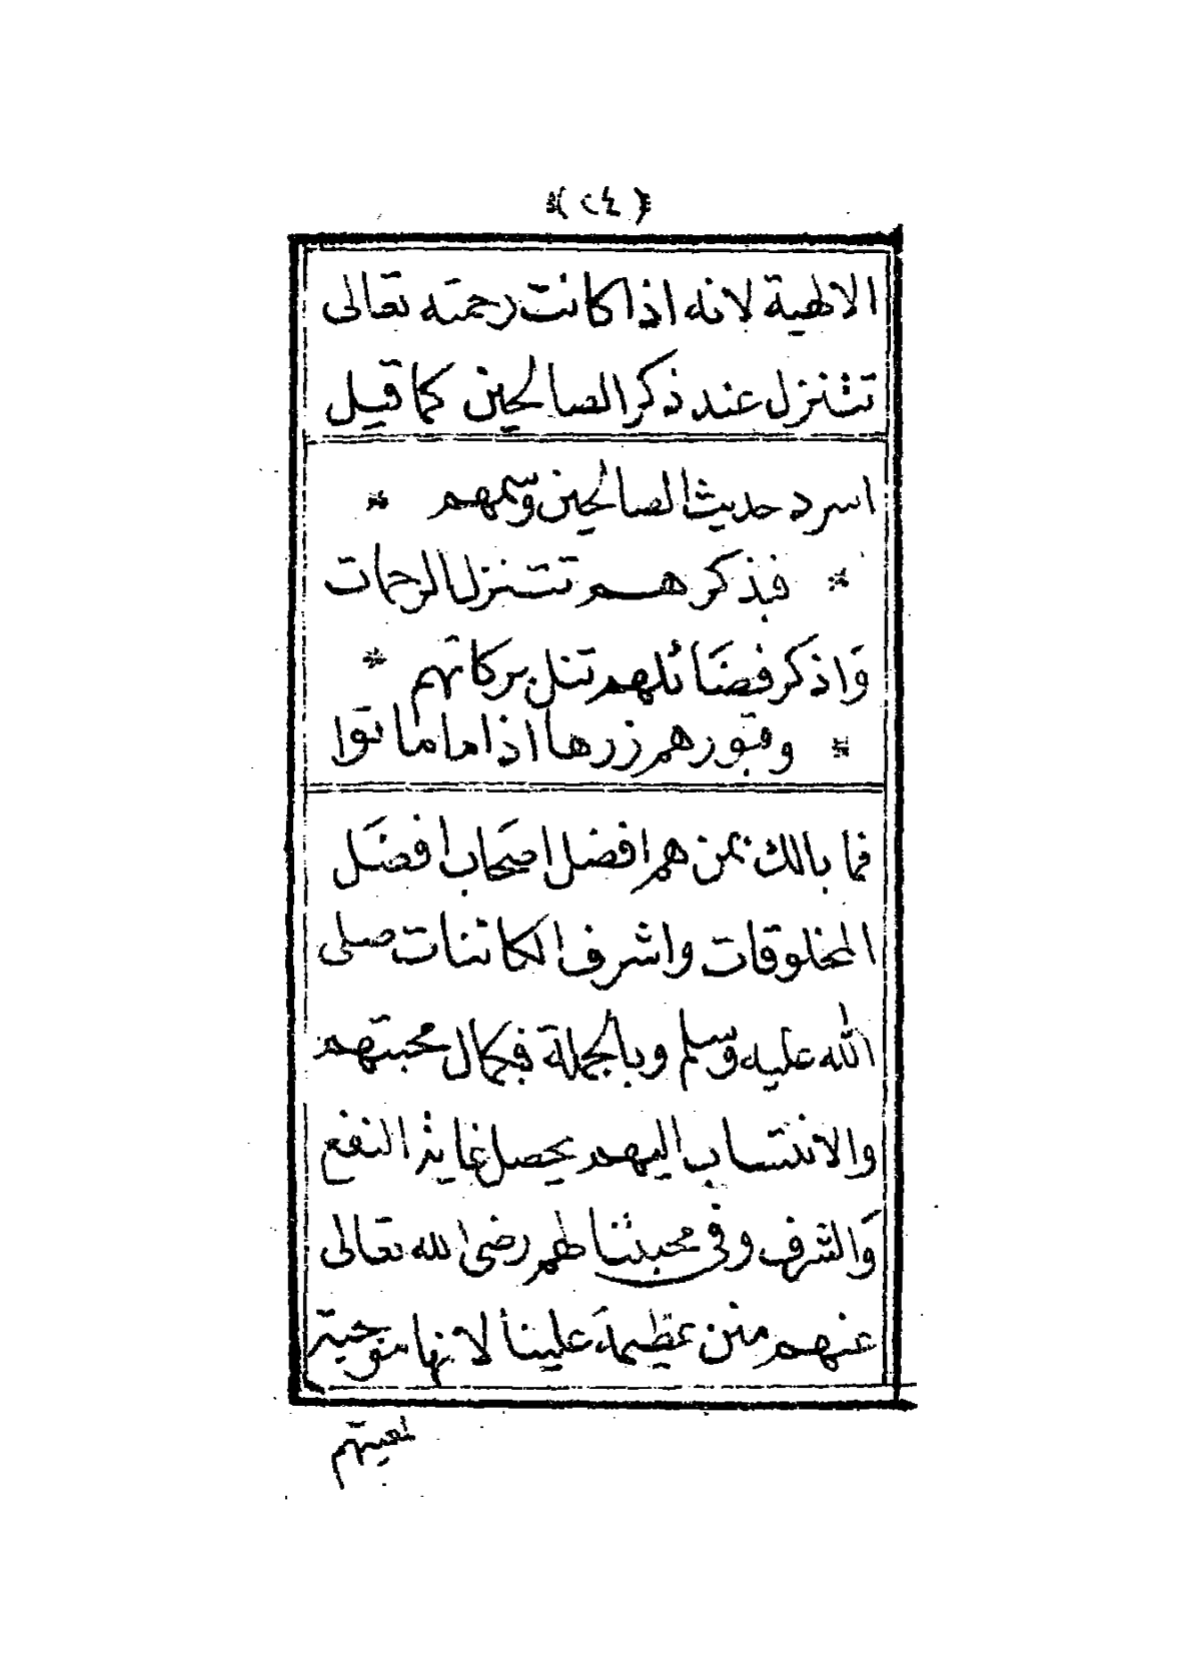 ﴿ ٢٤ ﴾
الالهية لانه اذا كانت رحمته تعالى
تتنزل عند ذكر الصالحين كما قيل
اسرد حديث الصالحين وسمهم *
* فبذكرهم تتنزل الرحمات
وَاذكر فضَائلهم تنل بركاتهم *
* وقبورهم زرها اذا ما ماتوا
فما بالك بمن هم افضل اصحَاب افضَل
المخلوقات واشرف الكائنات صلى
الله عليه وسلم وبالجملة فبكمال محبتهم
والانتساب اليهم يحصل غاية النفع
وَالشرف وفى محبتنا لهم رضى الله تعالى
عنهم منن عظيمة علينا لانها موجبة
لمعيتهم